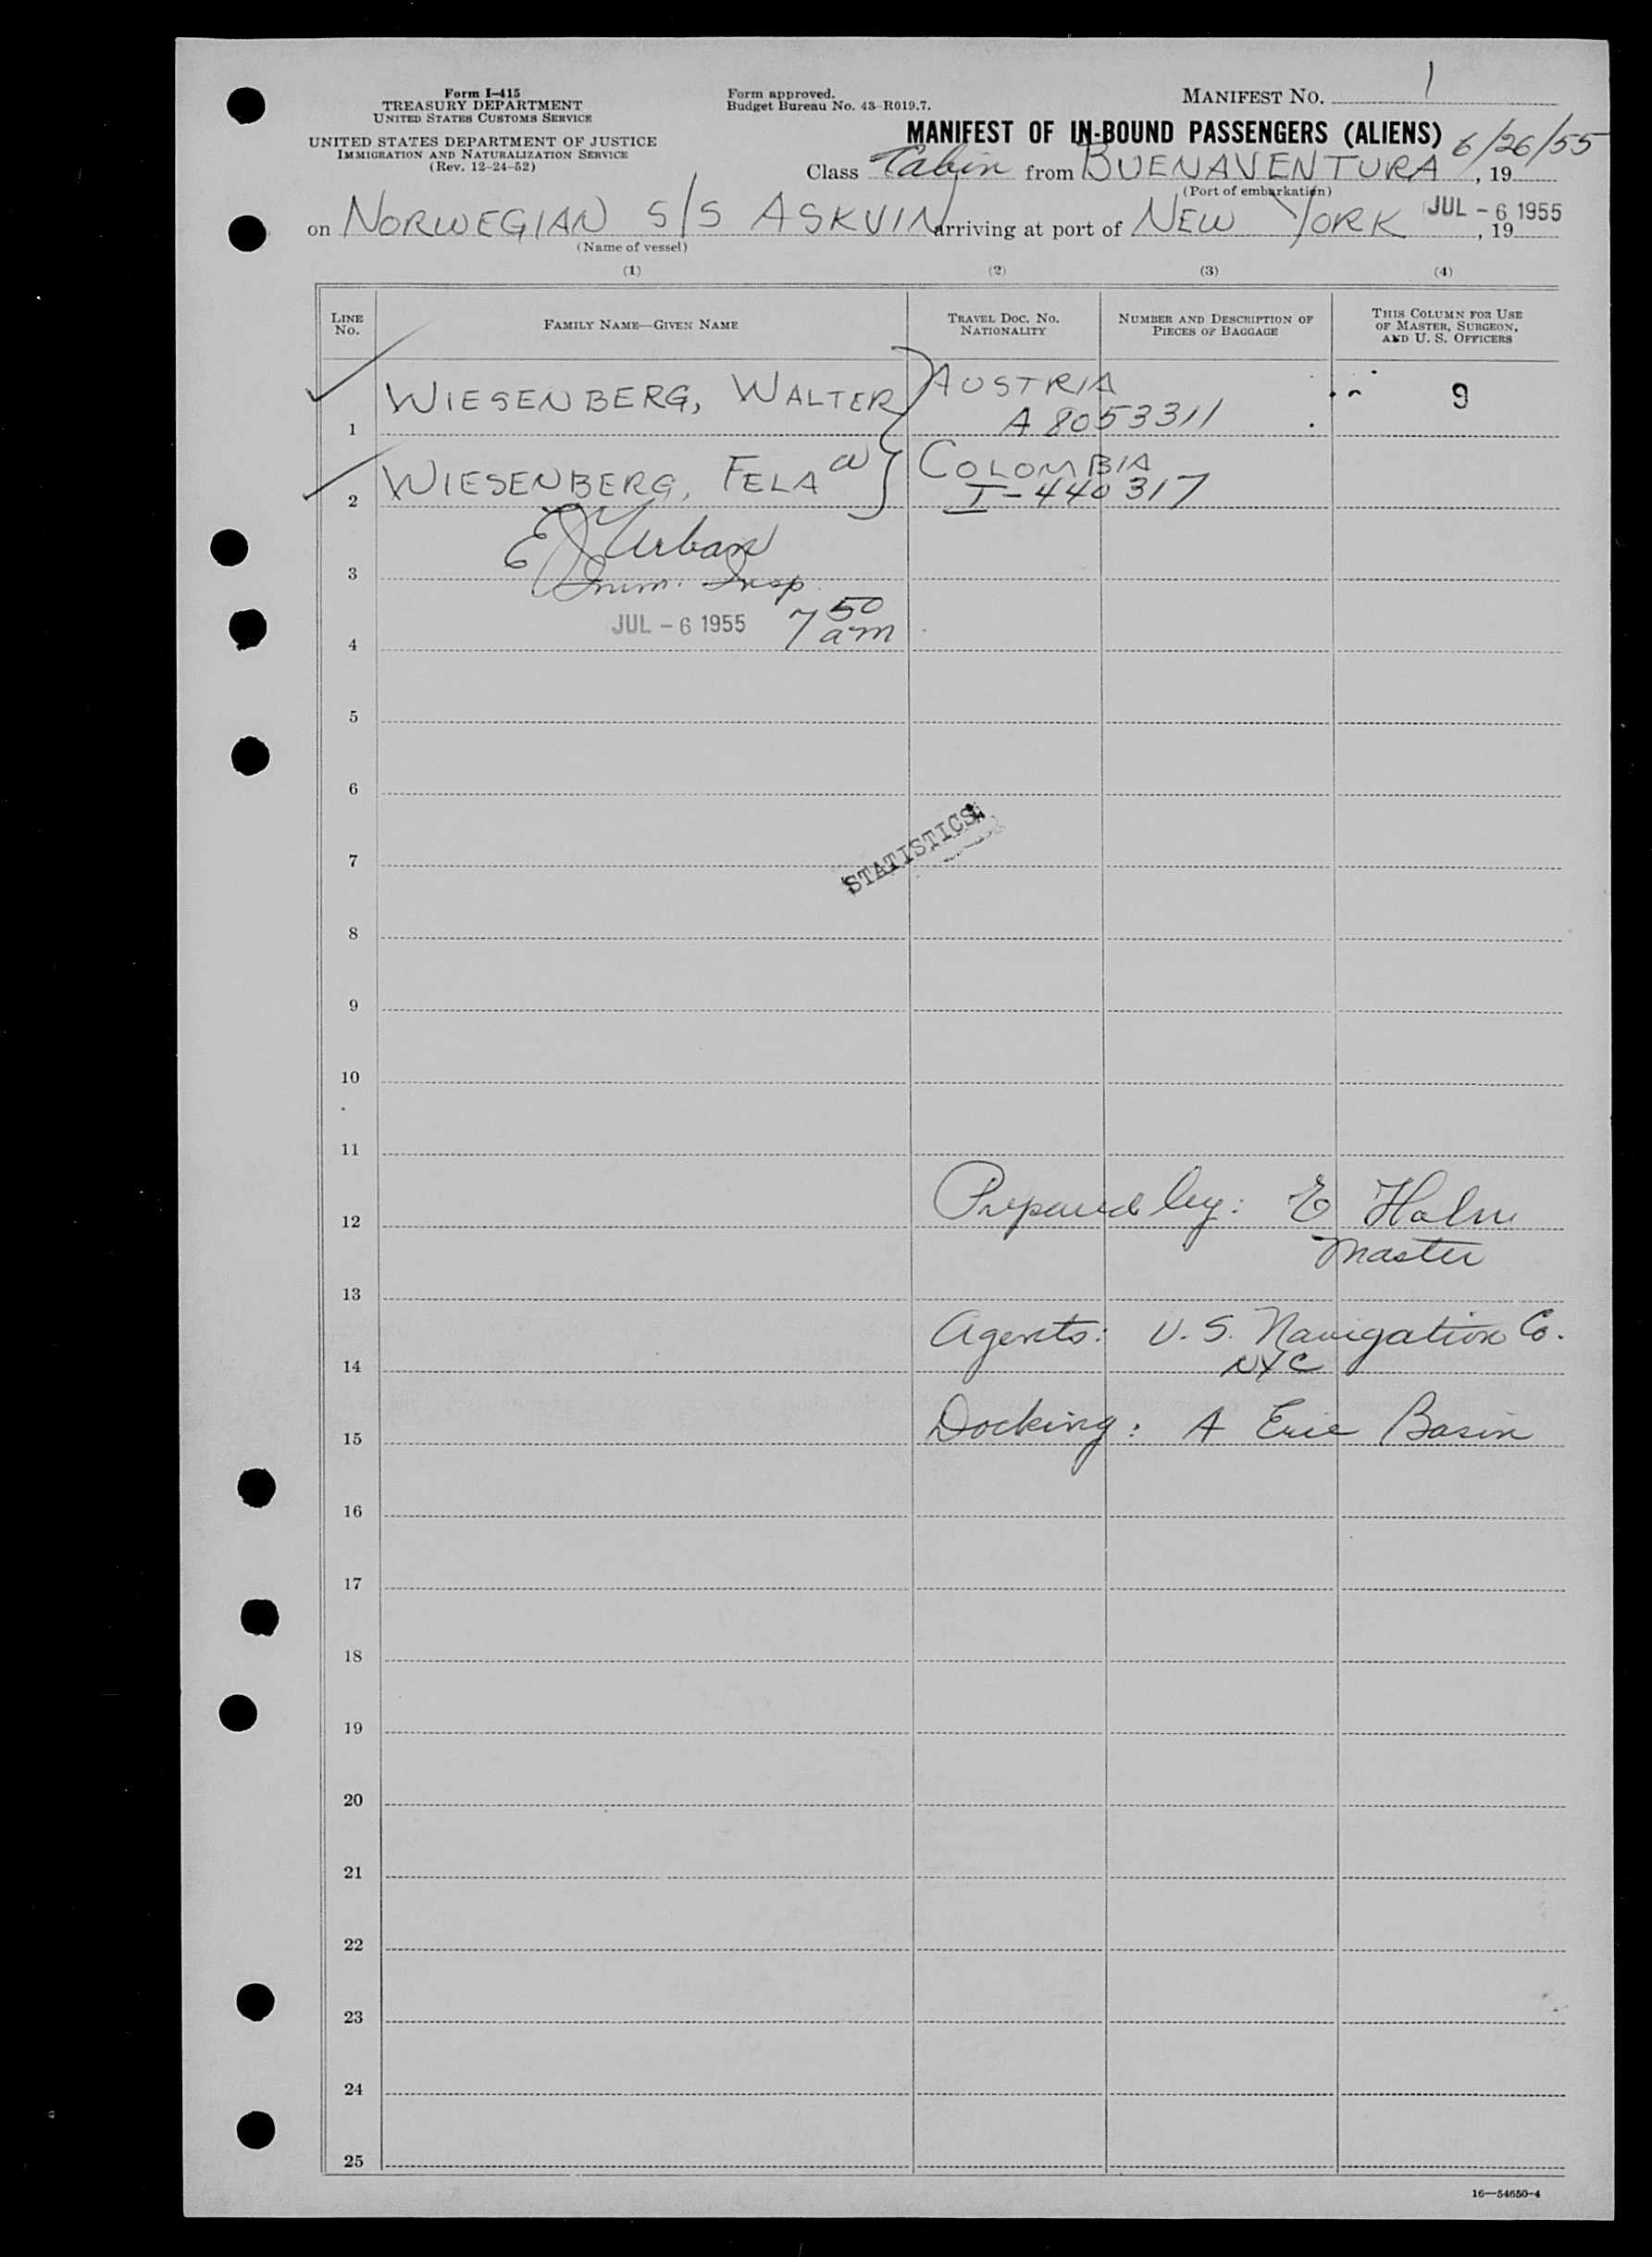 Form I-415
TREASURY DEPARTMENT
UNITED STATES CUSTOMS SERVICE
UNITED STATES DEPARTMENT OF JUSTICE
IMMIGRATION AND NATURALIZATION SERVICE
(Rev. 12-24-52)
Form approved.
Budget Bureau No. 43-R019.7.
MANIFEST NO. 1
MANIFEST OF IN-BOUND PASSENGERS (ALIENS)
6/26/55
Class Cabin from BUENAVENTURA, 19
(Port of embarkation)
JUL - 6 1955
on NORWEGIAN S/S ASKVIN arriving at port of NEW YORK, 19
(Name of vessel)
(1) (2) (3) (4)
LINE NO. FAMILY NAME—GIVEN NAME TRAVEL DOC. NO. NATIONALITY NUMBER AND DESCRIPTION OF PIECES OF BAGGAGE THIS COLUMN FOR USE OF MASTER, SURGEON, AND U. S. OFFICERS
1 WIESENBERG, WALTER AUSTRIA 9
A 8053311
2 WIESENBERG, FELA COLOMBIA
I-440317
E J Urban
3 Imm. Insp.
4 JUL - 6 1955 7 50 am
5
6
7 STATISTICS
8
9
10
11
12 Prepared by: E Holm
Master
13
Agents: U. S. Navigation Co.
14 NYC
15 Docking: A Erie Basin
16
17
18
19
20
21
22
23
24
25
16—54650-4